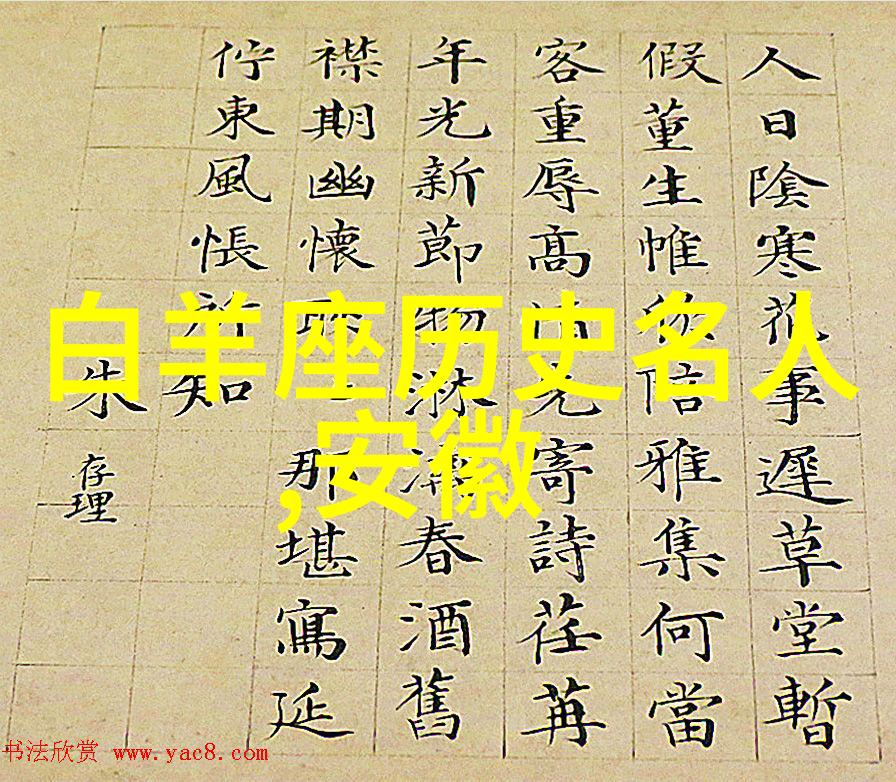 人日陰寒花事遲草堂暫
假董生帷信雅集何當
客重辱高情先寄詩荏苒
年光新節物淋漓春酒舊
襟期幽懷耿那堪寫延
佇東風悵所知
朱存理
白羊座历史名人
,安徽
书法欣赏 www.yac8.com